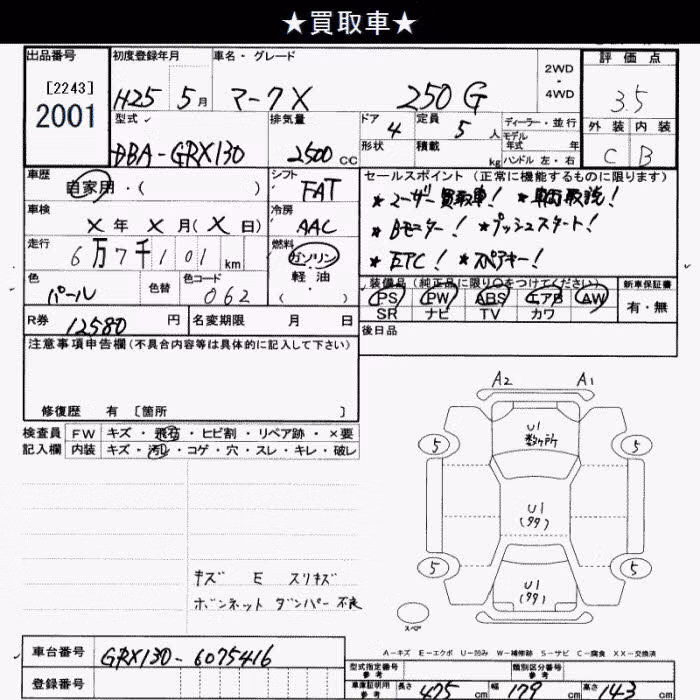 ★買取車★
出品番号
[2243]
2001
初度登録年月
H25 5月
車名・グレード
マークX 250G
2WD
・
4WD
評価点
3.5
外装 内装
C B
型式
DBA-GRX130
排気量
2500 CC
ドア 4
形状
定員 5 人
積載 kg
ディーラー・並行
モデル
年式 年
ハンドル 左・右
車歴
自家用・( )
シフト
FAT
セールスポイント (正常に機能するものに限ります)
★ユーザー買取車! ★車両取説!
★Bモニター! ★プッシュスタート!
★ETC! ★スペアキー!
車検
X 年 X 月 (X 日)
冷房
AAC
走行
6万7千101 km
燃料
ガソリン
軽・油
( ・ )
色
パール
色替
色コード
062
装備品 (純正品に限り○をつけてください)
PS PW ABS エアB AW
SR ナビ TV カワ
新車保証書
有・無
R券 12580 円
名変期限 月 日
後日品
注意事項申告欄(不具合内容等は具体的に記入して下さい)
修復歴 有 [箇所 ]
検査員
記入欄
FW キズ・飛石・ヒビ割・リペア跡・×要
内装 キズ・汚れ・コゲ・穴・スレ・キレ・破レ
A2 A1
U1
数ヶ所
5 5
U1
(タタ)
5 5
U1
(タタ)
スペア
キズ E スリキズ
ボンネット ダンパー 不良
A-キズ E-エクボ U-凹み W-補修跡 S-サビ C-腐食 XX-交換済
車台番号
GRX130-6075416
登録番号
型式指定番号
参考
類別区分番号
参考
車庫証明用
参考
長さ 475 cm 幅 179 cm 高さ 143 cm